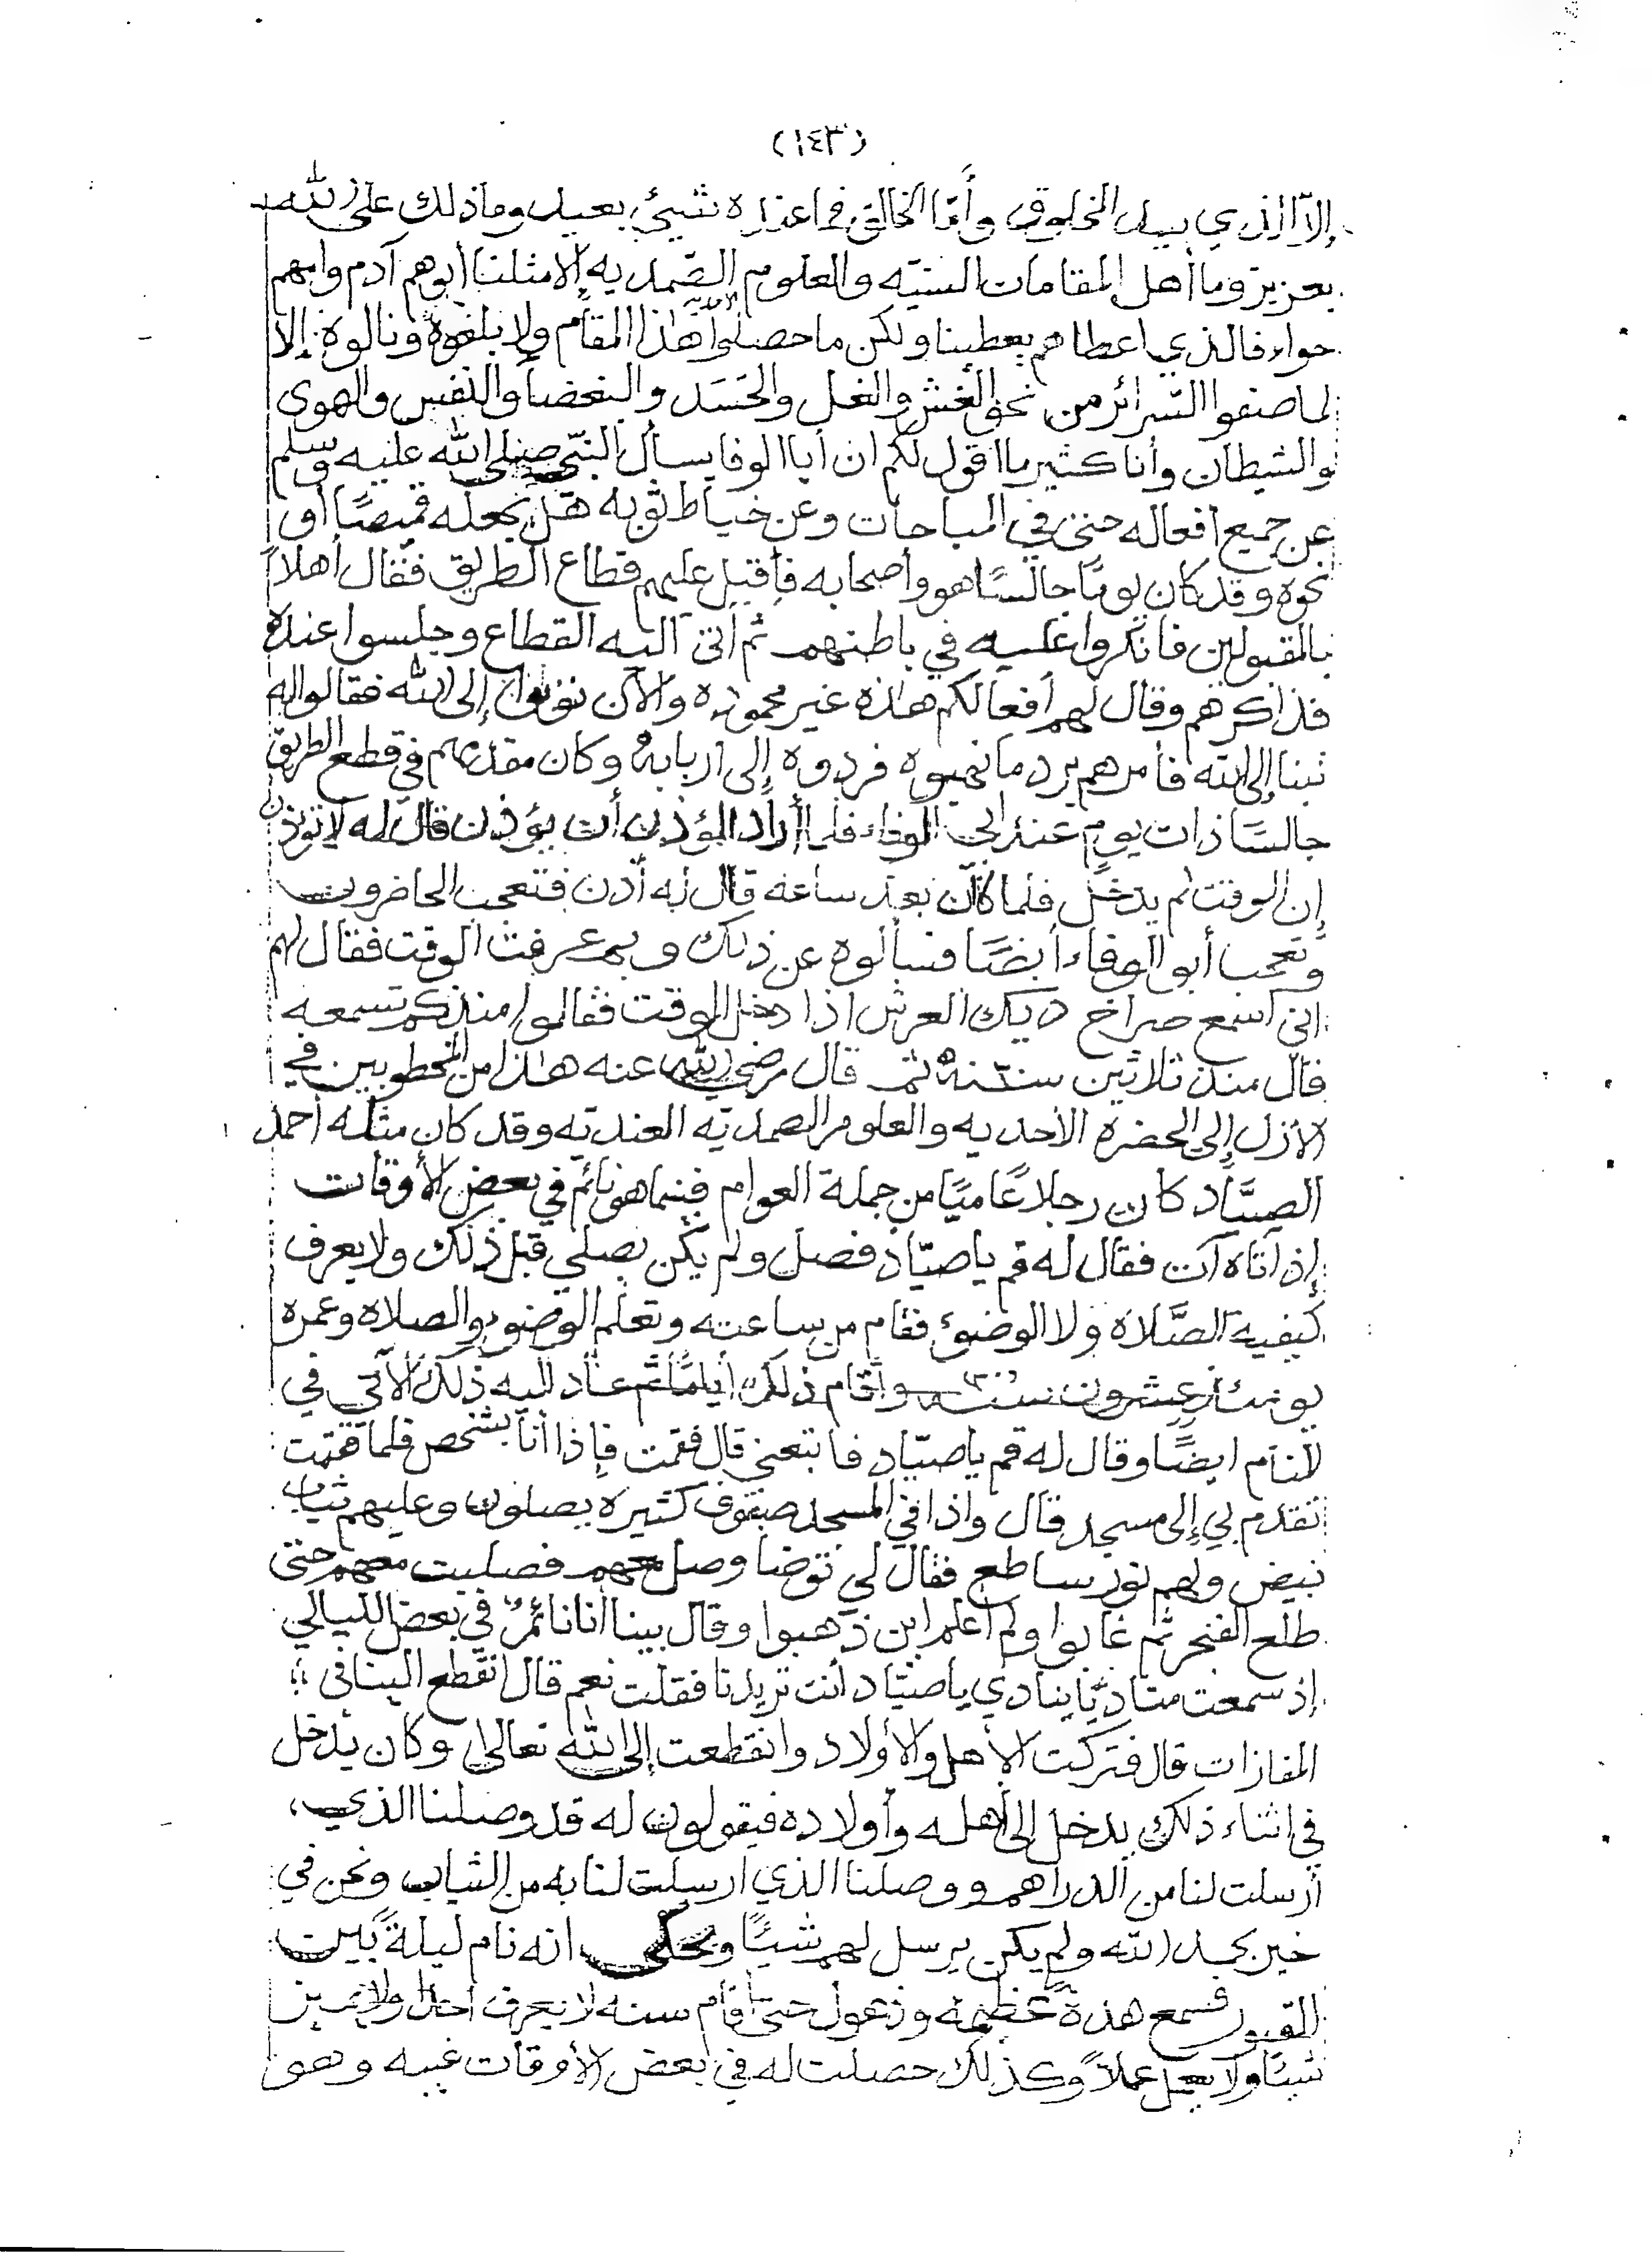 (١٤٣)
إلا الذي بيد المخلوق وأمّا الخالق فما عنده شيئ بعيد وما ذلك على الله
بعزيز وما أهل المقامات السنيّه والعلوم الصّمديه إلا مثلنا أبوهم آدم وامهم
حواء فالذي اعطاهم يعطينا ولكن ما حصلوا هذا المقام ولا بلغوه ونالوه إلا
لما صفوا السّرائر من نحو الغش والغل والحَسَد والبغضا والنفس والهوى
والشيطان وأنا كثير ما اقول لكم ان أبا الوفا يسأل النبّي صلى الله عليه وسلم
عن جميع أفعاله حتى في المباحات وعن خياط ثوبه هل يجعله قميصًا أو
نحوه وقد كان يومًا جالسًا هو وأصحابه فأقبل عليهم قطاع الطريق فقال أهلاً
بالمقبولين فانكروا عليه في باطنهم ثم أتى اليه القطاع وجلسوا عنده
فذاكرهم وقال لهم أفعالكم هاذه غير محموده والآن توبوا إلى الله فقالوا له
تبنا إلى الله فأمرهم برد ما نهبوه فردوه إلى أربابه وكان مقدمهم في قطع الطريق
جالسًا ذات يوم عند ابي الوفاء فلما أراد المؤذن أن يؤذن قال له لا تؤذن
إن الوقت لم يدخل فلما كان بعد ساعه قال له أذن فتعجب الحاضرون
وتعجب أبو الوفاء أيضًا فسألوه عن ذلك وبم عرفت الوقت فقال لهم
اني أسمع صراخ ديك العرش اذا دخل الوقت فقالوا منذ كم تسمعه
قال منذ ثلاثين سنة ثم قال رضي الله عنه هاذا من المخطوبين في
الأزل إلى الحضره الأحديه والعلوم الصمديّه العنديّه وقد كان مثله أحمد
الصيَّاد كان رجلاً عاميًا من جملة العوام فبينما هو نائم في بعض الأوقات
إذ أتاه آت فقال له قم يا صيّاد فصل ولم يكن يصلي قبل ذلك ولا يعرف
كيفية الصَّلاة ولا الوضوء فقام من ساعته وتعلم الوضوء والصلاه وعمره
يومئذ عشرون سنه وأقام ذلك أيامًا ثم عاد إليه ذلك الآتي في
لأنام ايضًا وقال له قم يا صيّاد فاتبعني قال فقمت فإذا أنا بشخص فلما قمت
تقدم بي إلى مسجد قال واذا في المسجد صفوف كثيره يصلون وعليهم ثياب
بيض ولهم نور ساطع فقال لي توضا وصل معهم فصليت معهم حتى
طلع الفجر ثم غابوا ولم أعلم اين ذهبوا وقال بينا أنا نائمٌ في بعض الليالي
إذ سمعت مناديًا ينادي يا صيّاد أنت تريدنا فقلت نعم قال انقطع الينا في
المفازات قال فتركت الأهل والأولاد وانقطعت إلى الله تعالى وكان يدخل
في اثناء ذلك يدخل إلى أهله وأولاده فيقولون له قد وصلنا الذي
أرسلت لنا من الدراهم ووصلنا الذي ارسلت لنا به من الثياب ونحن في
خير بحمد الله ولم يكن يرسل لهم شيئًا ويحكى انه نام ليلةً بين
القبور فسمع هدةً عظيمة وذهول حتى أقام سنه لا يعرف احدا ولا يميز
شيئًا ولا يعمل عملاً وكذلك حصلت له في بعض الأوقات غيبه وهو